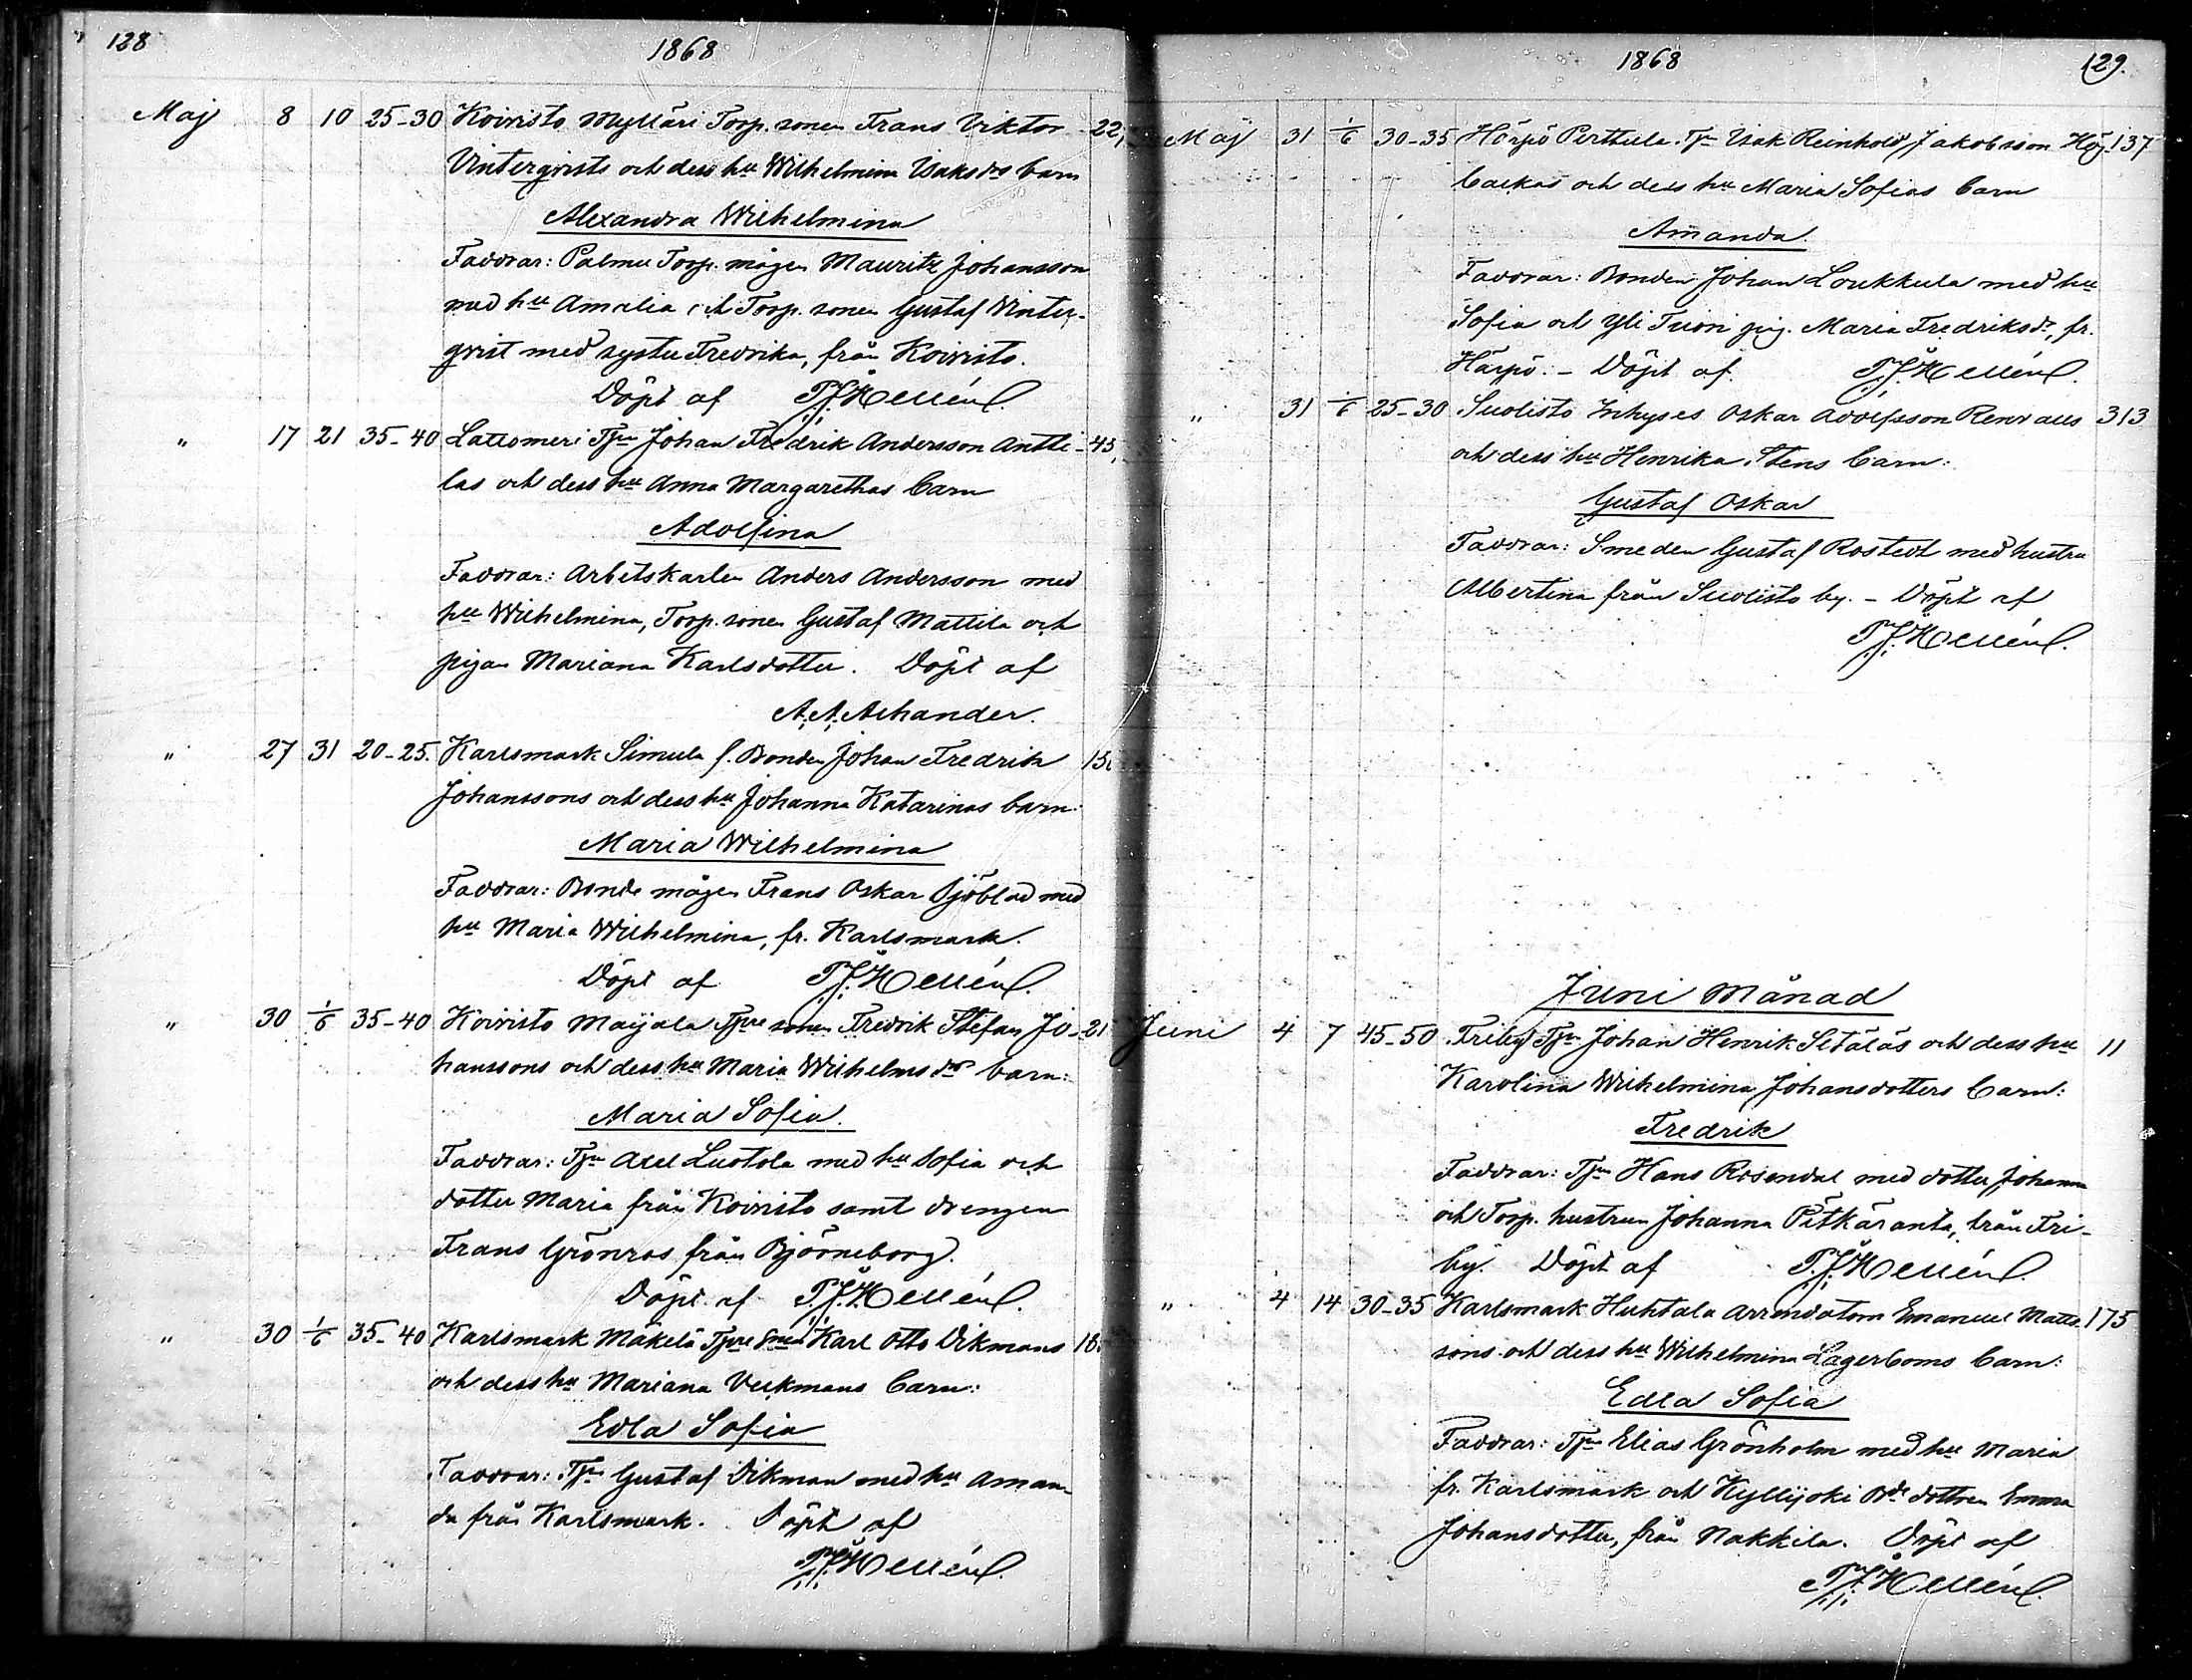 128
1868
Maj 8 10 25-30 Koivisto Mylläri Torp. sonen Frans Viktor 22,
Vinterqvists och dess hu Wilhelmina Isaksdrs barn
Alexandra Wilhelmina
Faddrar: Palmu Torp. mågen Mauritz Johansson
med hu Amalia och Torp. sonen Gustaf Winter-
qvist med syster Fredrika, från Koivisto.
Döpt af F.J. Hellén.
" 17 21 35-40 Lattomeri Tpn Johan Fredrik Andersson Antti- 43,
las och dess hu Anna Margarethas barn
Adolfina
Faddrar: Arbetskarlen Anders Andersson med
hu Wilhelmina, Torp. sonen Gustaf Mattila och
pigan Mariana Karlsdotter. Döpt af
A. A. Alhander.
" 27 31 20-25. Karlsmark Simula f. Bonden Johan Fredrik 15
Johanssons och dess hu Johanna Katarinas barn:
Maria Wilhelmina
Faddrar: Bonde mågen Frans Oskar Sjöblad med
hu Maria Wilhelmina, fr. Karlsmark.
Döpt af F.J. Hellén.
" 30 1/6 35-40 Koivisto Maijala Tpre sonen Fredrik Stefan Jo- 21
hanssons och dess hu Maria Wilhelms drs barn:
Maria Sofia.
Faddrar: Tpn Axel Luotola med hu Sofia och
dotter Maria från Koivisto samt drengen
Frans Grönroos från Björneborg.
Döpt af F.J. Hellén.
" 30 1/6 35-40 Karlsmark Mäkelä Tpre Karl Otto Vikmans 18
och dess hu Mariana Veckmans barn:
Edla Sofia
Faddrar: Tpn Gustaf Vikman med hu Aman-
da från Karlsmark. Döpt af
F.J. Hellén.
1868
129.
Maj 31 1/6 30-35 Härpö Perttula Tpn Isak Reinhold Jakobsson Hög- 137
backas och dess hu Maria Sofias barn
Amanda.
Faddrar: Bonden Johan Loukkula med hu
Sofia och Yli Tuori pig. Maria Fredriksdr, fr.
Härpö. - Döpt af F.J. Hellén.
" 31 1/6 25-30 Suolisto Inhyses Oskar Adolfsson Renvalls 313
och dess hu Henrika Stens barn:
Gustaf Oskar
Faddrar: Smeden Gustaf Rostedt med hustru
Albertina från Suolisto by. - Döpt af
F.J. Hellén.
Juni Månad
Juni 4 7 45-50 Friby Tpn Johan Henrik Setäläs och dess hu 11
Karolina Wilhelmina Johansdotters barn:
Fredrik
Faddrar: Tpn Hans Rosendal med dotter Johanna
och Torp. hustrun Johanna Pitkäranta, från Fri-
by. Döpt af F.J. Hellén.
" 4 14 30-35 Karlsmark Huhtala Arrendatorn Emanuel Matts- 175
sons och dess hu Wilhelmina Lagerboms barn:
Edla Sofia
Faddrar: Tpn Elias Grönholm med hu Maria
fr. Karlsmark och Kyllijoki Bde dottren Emma
Johansdotter, från Nakkila. Döpt af
F.J. Hellén.